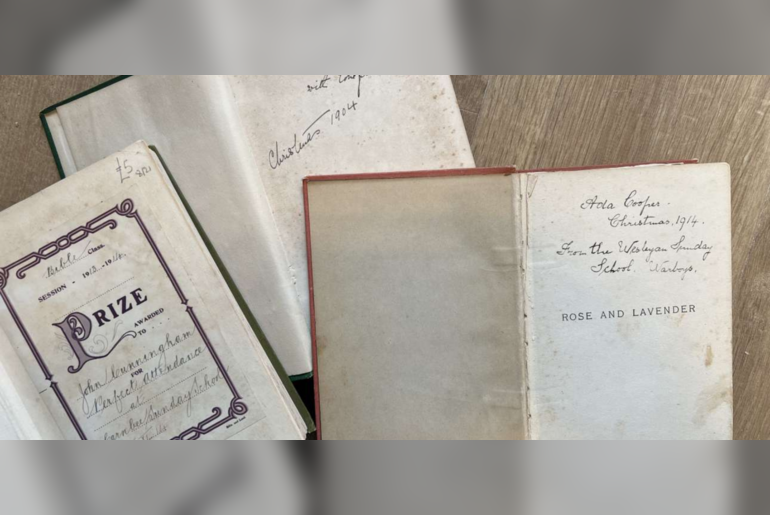 with
Christmas 1904
£5
Bible Class.
SESSION - 1913-1914.
PRIZE
AWARDED
TO
John Cunningham
FOR
Perfect Attendance
at
Sunday School
Ada Cooper.
Christmas, 1914.
From the Wesleyan Sunday
School. Warboys.
ROSE AND LAVENDER